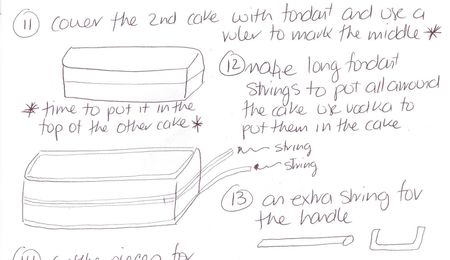 11 cover the 2nd cake with fondant and use a
ruler to mark the middle *
12 make long fondant
strings to put all around
the cake use vodka to
put them in the cake
* time to put it in the
top of the other cake *
string
string
13 an extra string for
the handle
14
pieces for